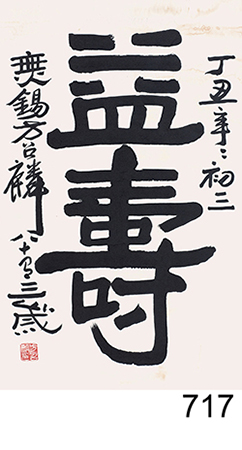 丁丑年〻初三
益壽
無錫方召麟
八十有三歲
717